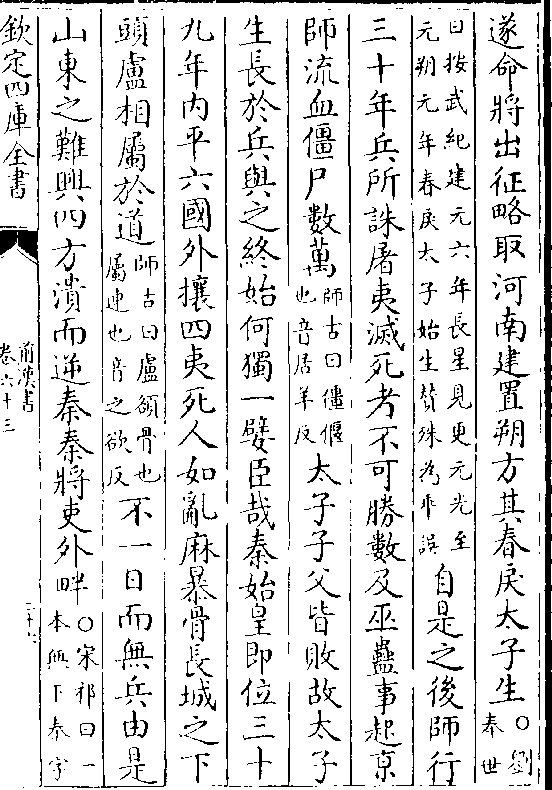 遂命將出征略取河南建置朔方其春戾太子生○劉奉世
曰按武紀建元六年長星見更元光至元朔元年春戾太子始生贊殊為乖誤自是之後師行
三十年兵所誅屠夷滅死者不可勝數及巫蠱事起京
師流血僵尸數萬師古曰僵偃也音居羊反太子子父皆敗故太子
生長於兵與之終始何獨一嬖臣哉秦始皇即位三十
九年内平六國外攘四夷死人如亂麻暴骨長城之下
頭盧相屬於道師古曰盧頟骨也屬連也音之欲反不一日而無兵由是
山東之難興四方潰而逆秦秦將吏外畔○宋祁曰一本無下秦字
欽定四庫全書
前漢書
卷六十三
二十六